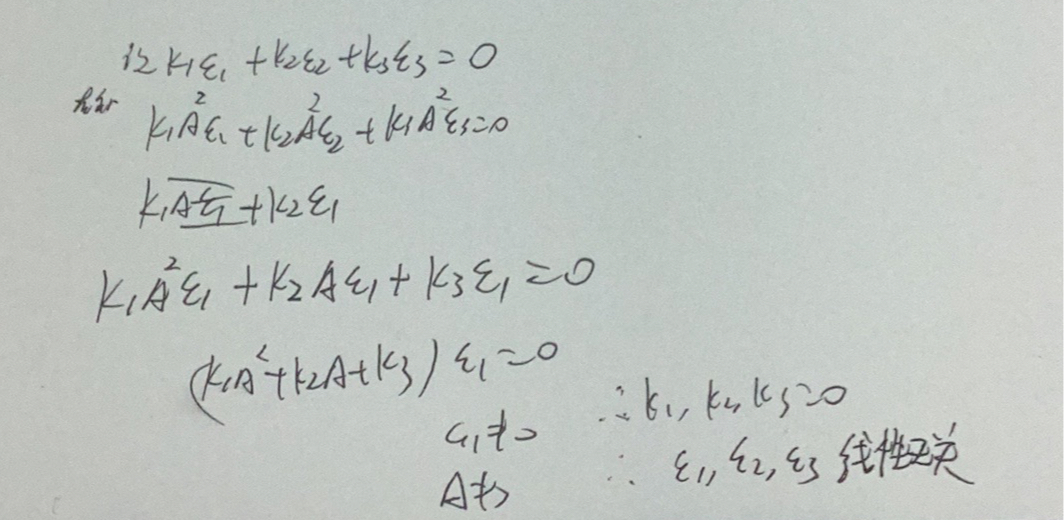 设 k₁ε₁ + k₂ε₂ + k₃ε₃ = 0
k₁A²ε₁ + k₂A²ε₂ + k₃A²ε₃ = 0
k₁Aε₁ + k₂ε₁
k₁A²ε₁ + k₂Aε₁ + k₃ε₁ = 0
(k₁A² + k₂A + k₃) ε₁ = 0
ε₁ ≠ 0 ∴ k₁, k₂, k₃ = 0
A ≠ 0 ∴ ε₁, ε₂, ε₃ 线性无关